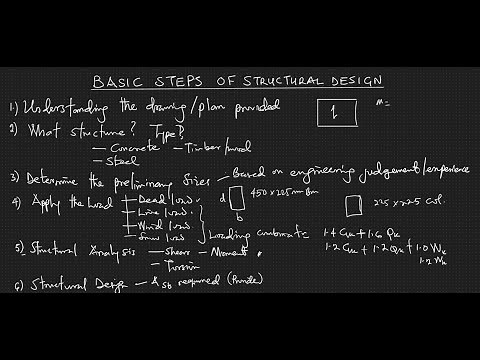 BASIC STEPS OF STRUCTURAL DESIGN
1) Understanding the drawing/plan provided
1
m=
2) What structure? Type?
— Concrete — Timber/wood
— Steel
3) Determine the preliminary sizes — Based on engineering judgement/experience
d
b
450 x 225mm Bm
225 x 225 Col.
4) Apply the Load — Dead load.
— Live load.
— Wind load.
— Snow load.
Loading combinate
1.4 Gk + 1.6 Qk
1.2 Gk + 1.2 Qk + 1.0 Wk
1.2 Wk
5) Structural Analysis — Shear — Moments
— Torsion
6) Structural Design — Ast required (Provide)